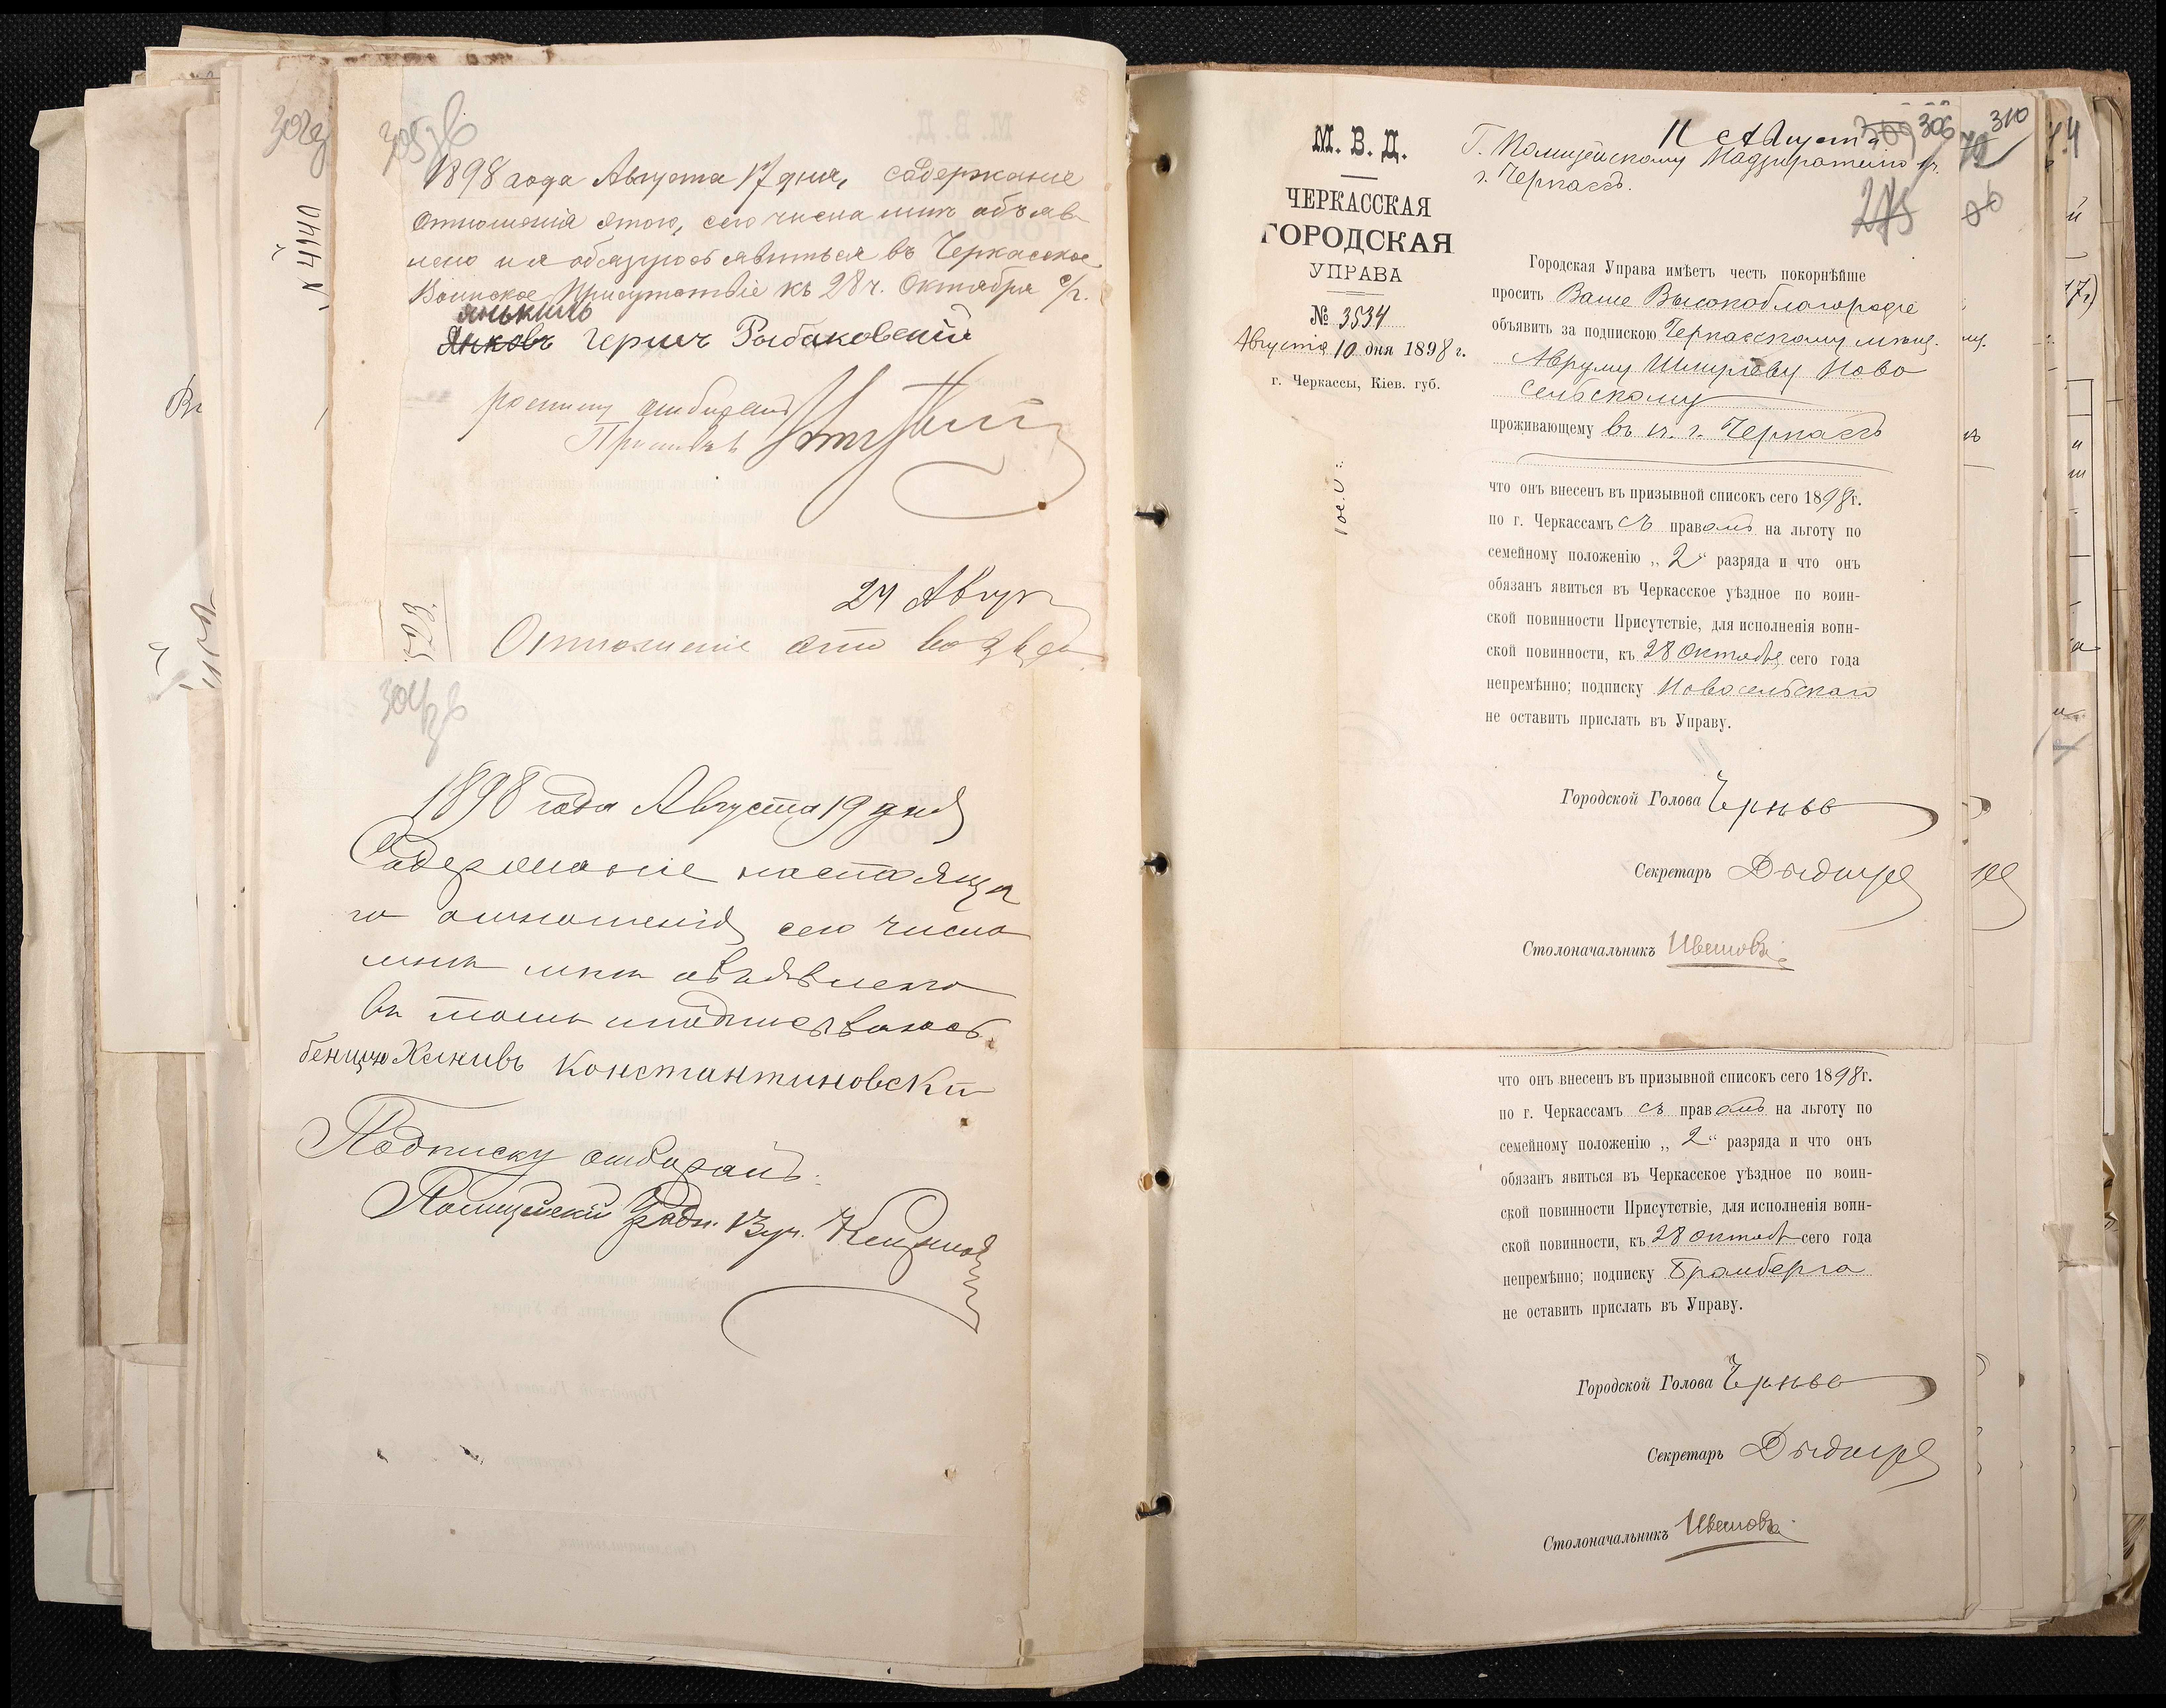 302 об
№ 4140
305 об
1898 года Августа 17 дня, содержание
отношенія этого, сего числа мнѣ объяв-
лено и я обязуюсь явиться въ Черкасское
Воинское Присутствіе къ 28 ч. Октября с/г.
Янькиль
Янковъ Герше Рыбаковскій
отбиралъ
24 Авгус
Отношеніе это возвра
523.
304 об
1898 года Августа 19 дня
Содержаніе настояща
го отношенія сего числа
мнѣ объявлено
въ томъ и подписываюсь.
Константиновски
Подписку отбиралъ:
Полицейскій
М. В. Д.
ЧЕРКАССКАЯ
ГОРОДСКАЯ
УПРАВА
№ 3534
Августа 10 дня 1898 г.
г. Черкассы, Кіев. губ.
11 Августа
309 306
310
275
Г. Полицейскому Надзирателю
г. Черкассъ.
Городская Управа имѣетъ честь покорнѣйше
просить Ваше Высокоблагородіе
объявить за подпискою Черкасскому мѣщ.
Авруму Шмулеву Ново
сельскому
проживающему въ г. Черкассъ
что онъ внесенъ въ призывной списокъ сего 1898г.
по г. Черкассамъ съ правомъ на льготу по
семейному положенію „2“ разряда и что онъ
обязанъ явиться въ Черкасское уѣздное по воин-
ской повинности Присутствіе, для исполненія воин-
ской повинности, къ 28 Октября сего года
непремѣнно; подписку Новосельскаго
не оставить прислать въ Управу.
Городской Голова
Секретарь
Столоначальникъ
что онъ внесенъ въ призывной списокъ сего 1898г.
по г. Черкассамъ съ правомъ на льготу по
семейному положенію „2“ разряда и что онъ
обязанъ явиться въ Черкасское уѣздное по воин-
ской повинности Присутствіе, для исполненія воин-
ской повинности, къ 28 октяб сего года
непремѣнно; подписку Бромберга
не оставить прислать въ Управу.
Городской Голова
Секретарь
Столоначальникъ